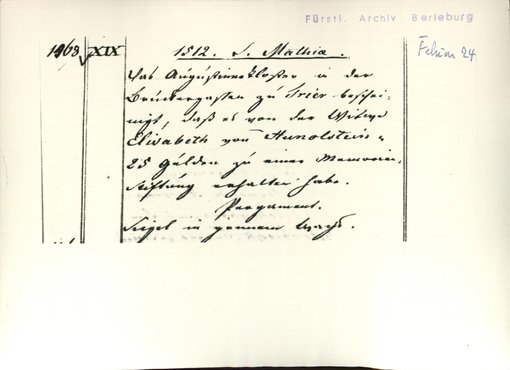 Fürstl. Archiv Berleburg
1468 XIX 1512. S. Mathiæ. Februar 24
Das Augustinerkloster in der
Brückergassen zu Trier beschei-
nigt, daß es von der Witwe
Elisabeth von Hunolstein
25 Gulden zu einer Memorien-
stiftung erhalten habe.
Pergament.
Siegel in grünem Wachs.